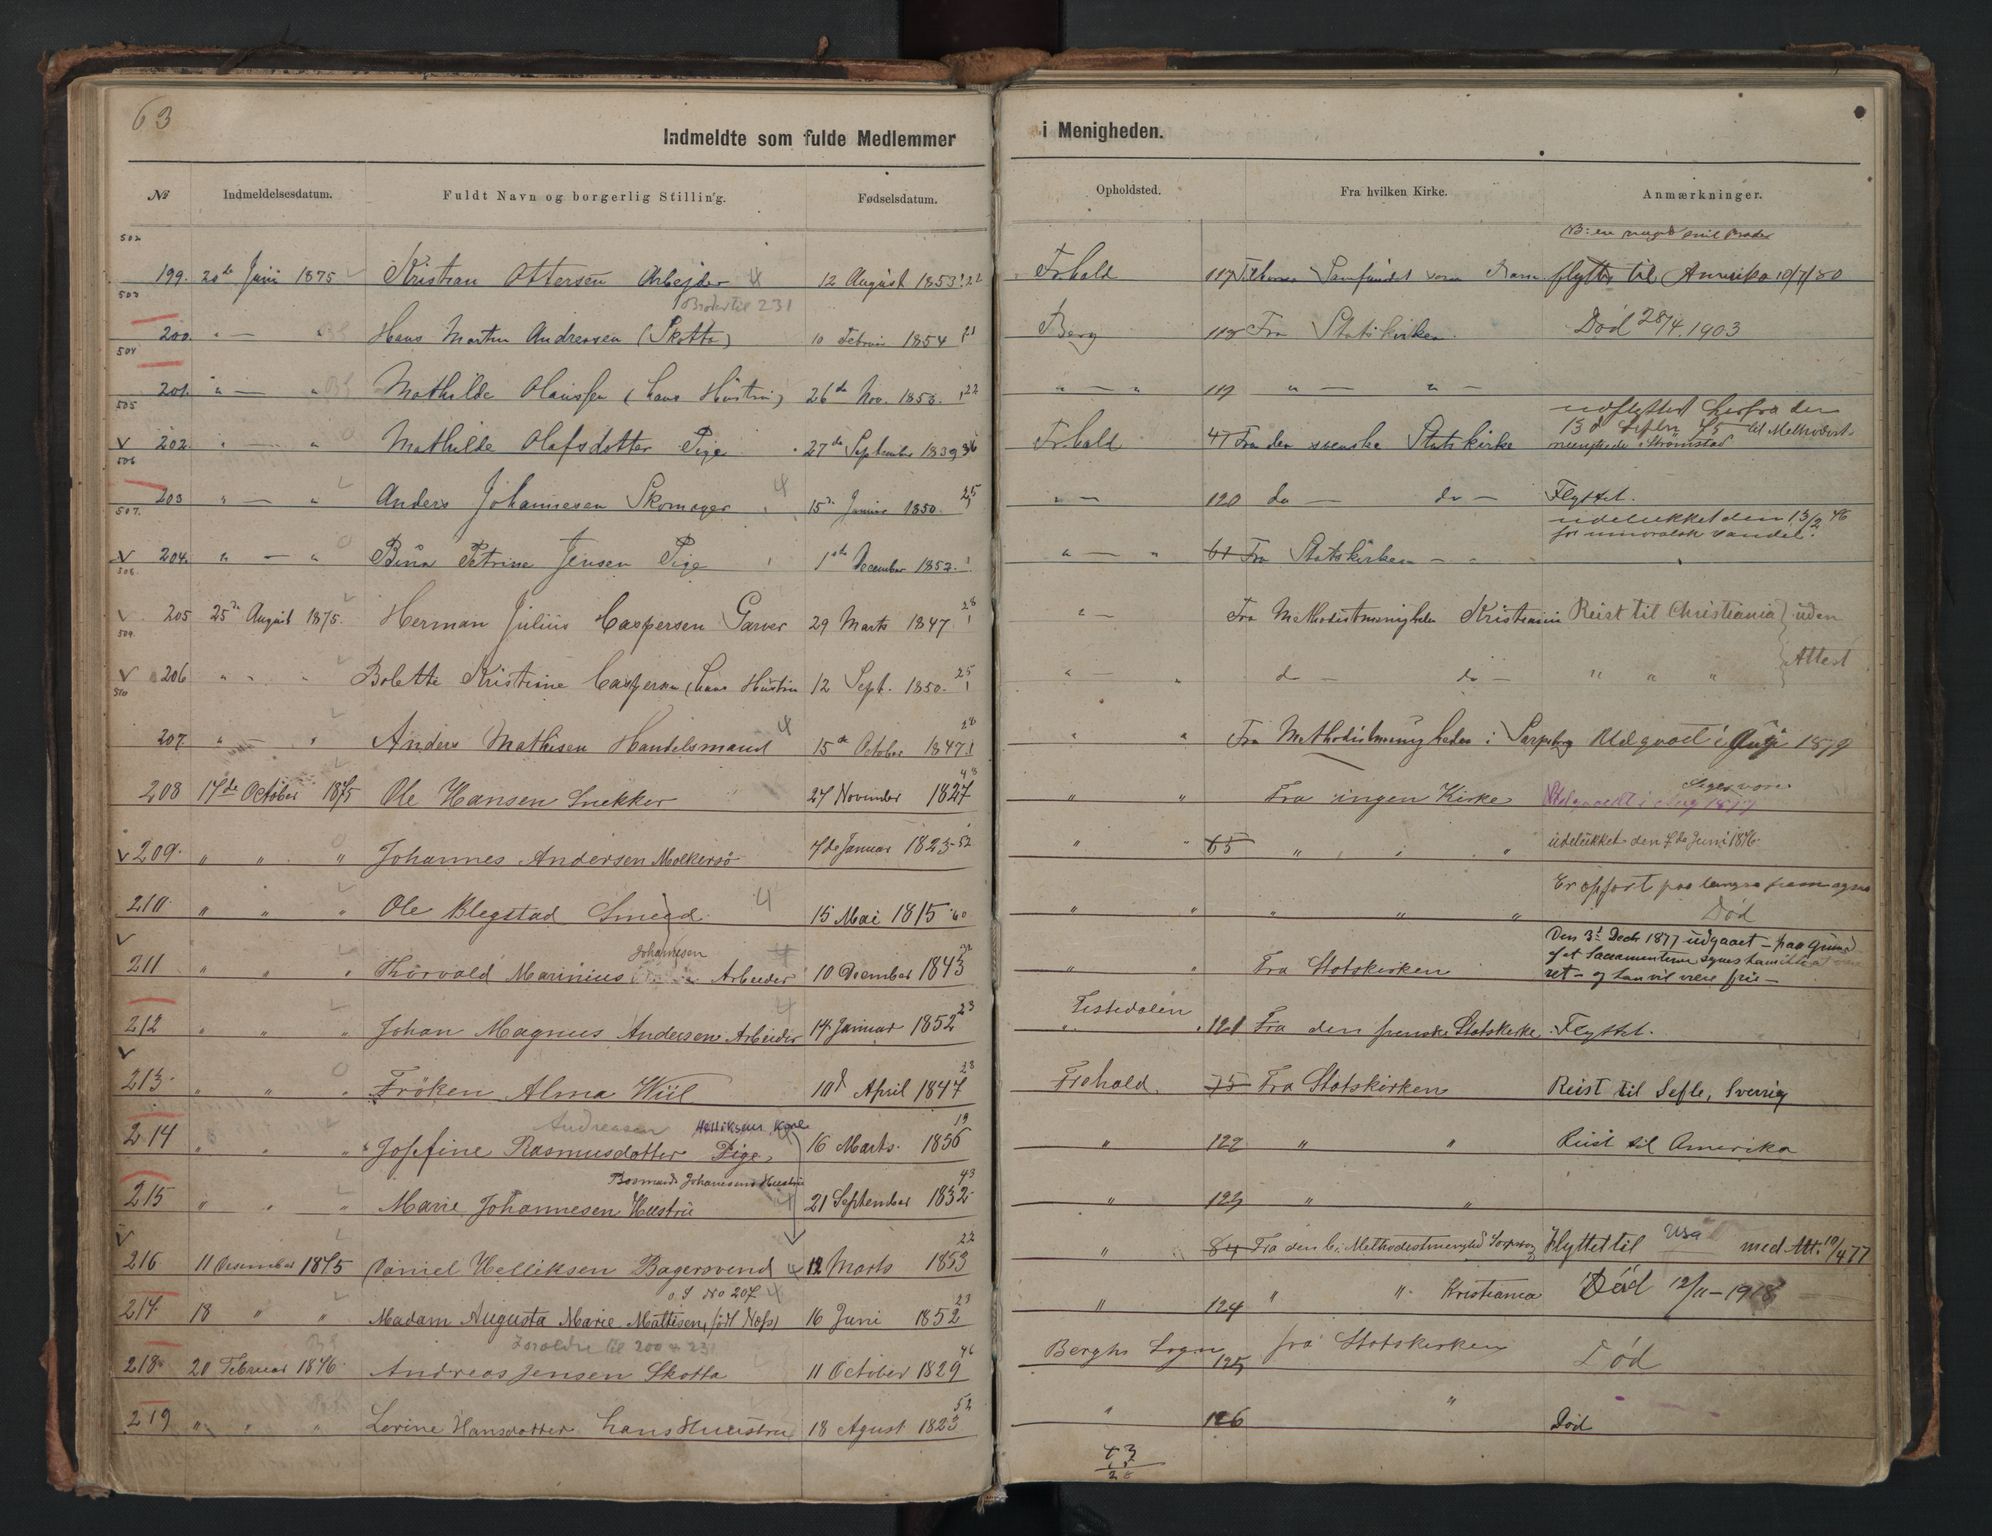 63
Indmeldte som fulde Medlemmer i Menigheden.
№ Indmeldelsesdatum. Fuldt Navn og borgerlig Stilling. Fødselsdatum. Opholdsted. Fra hvilken Kirke. Anmærkninger.
502
199. 20de Juni 1875 Kristian Ottersen Arbejder 4 12 August 1853 22 Frhald 117 Samfundet flyttet til Amerika 10/7/80
503 Broder til 231
200. " — " Hans Martin Andreasen (Skotta) 10 Februar 1854 21 Berg 118 Fra Statskirken Død 28/4 1903
504
201. " — " Mathilde Olaussen (hans Hustru) 26de Nov. 1853. 22 " — " 119 " — " —
505 udflyttet herfra den
202. " — " Mathilde Olafsdotter Pige 27de September 1839 36 Frhald 47 Fra den svenske Statskirke 13de Septbr 75 til Methodist-
506 menighede i Strømstad
203 " — " Anders Johannesen Skomager 4 15de Junie 1850. 25 " — 120 do — do — Flyttet.
507. udelukket den 13/2 76
204. " — " Bina Petrine Jensen Pige 1ste December 1852. " — " 61 Fra Statskirken — for umoralsk vandel.
508.
205 25de August 1875. Herman Julius Caspersen Garver 29 Marts 1847 28 " — Fra Methodistmenigheden Kristiania Reist til Christiania } uden
509.
206 " " " Bolette Kristine Caspersen (hans Hustru 12 Sept. 1850. 25 " — " do — do — " " " } Attest
510
207. " — " Anders Mathisen Handelsmand 4 15de October 1847. 28 " " Fra Methodistmenigheden i Sarpsborg Udgaaet i Aug 1879
208 17de October 1875 Ole Hansen Snekker 27 November 1827 48 " " Fra ingen Kirke Udgaaedt i Aug 1877
209. " " " Johannes Andersen Molkersö 7de Januar 1823 52 " " 65 " " " udelukket den 7de Juni 1876.
210. " " " Ole Blegstad Smed. 4 15 Mai 1815 60 " " " " " Er opført paa Død
211 " " " Thorvald Marinius Johannesen Arbeider 4 10 Desember 1843 32 " " Fra Statskirken Den 3die Decbr 1877 udgaaet – paa Grund
af at Sacramenterne synes ham
ret – og han vil være fri –
212 " " " Johan Magnus Andersen Arbeider 4 14 Januar 1852 23 Tistedalen " 121 Fra den svenske Statskirke Flyttet.
213. " " " Fröken Alma Wiil 10de April 1847 28 Frehald. 75 Fra Statskirken Reist til Sefle, Sverrig
Andreasen Helliksen Kone
214 " " " Josefine Rasmusdotter Pige 4 16 Marts. 1856 19 " 122 " " Reist til Amerika
Johannesens Hustru
215 " " " Marie Johannesen Hustru 4 21 September 1832 43 " 123 " "
216 11 Desember 1875 Daniel Helliksen Bagersvend 4 12 Marts 1853 22 " 84 Fra den b. Methodestmenighed Sarpsborg Flyttet til Usa med Att. 10/4 77
No 207 4
217 18 " " Madam Augusta Marie Mattisen, född Næss 16 Juni 1852 23 " 124 " " Kristiania Död 12/11 – 1918
Foraldre til 200 & 231
218. 20 Februar 1876. Andreas Jensen Skotta 11 October 1829 46 Berghs Sogn 125 frá Statskirken Död
219 " " " Lovine Hansdotter hans Huustru 18 Agust 1823 52 " 126 " Död
43
28